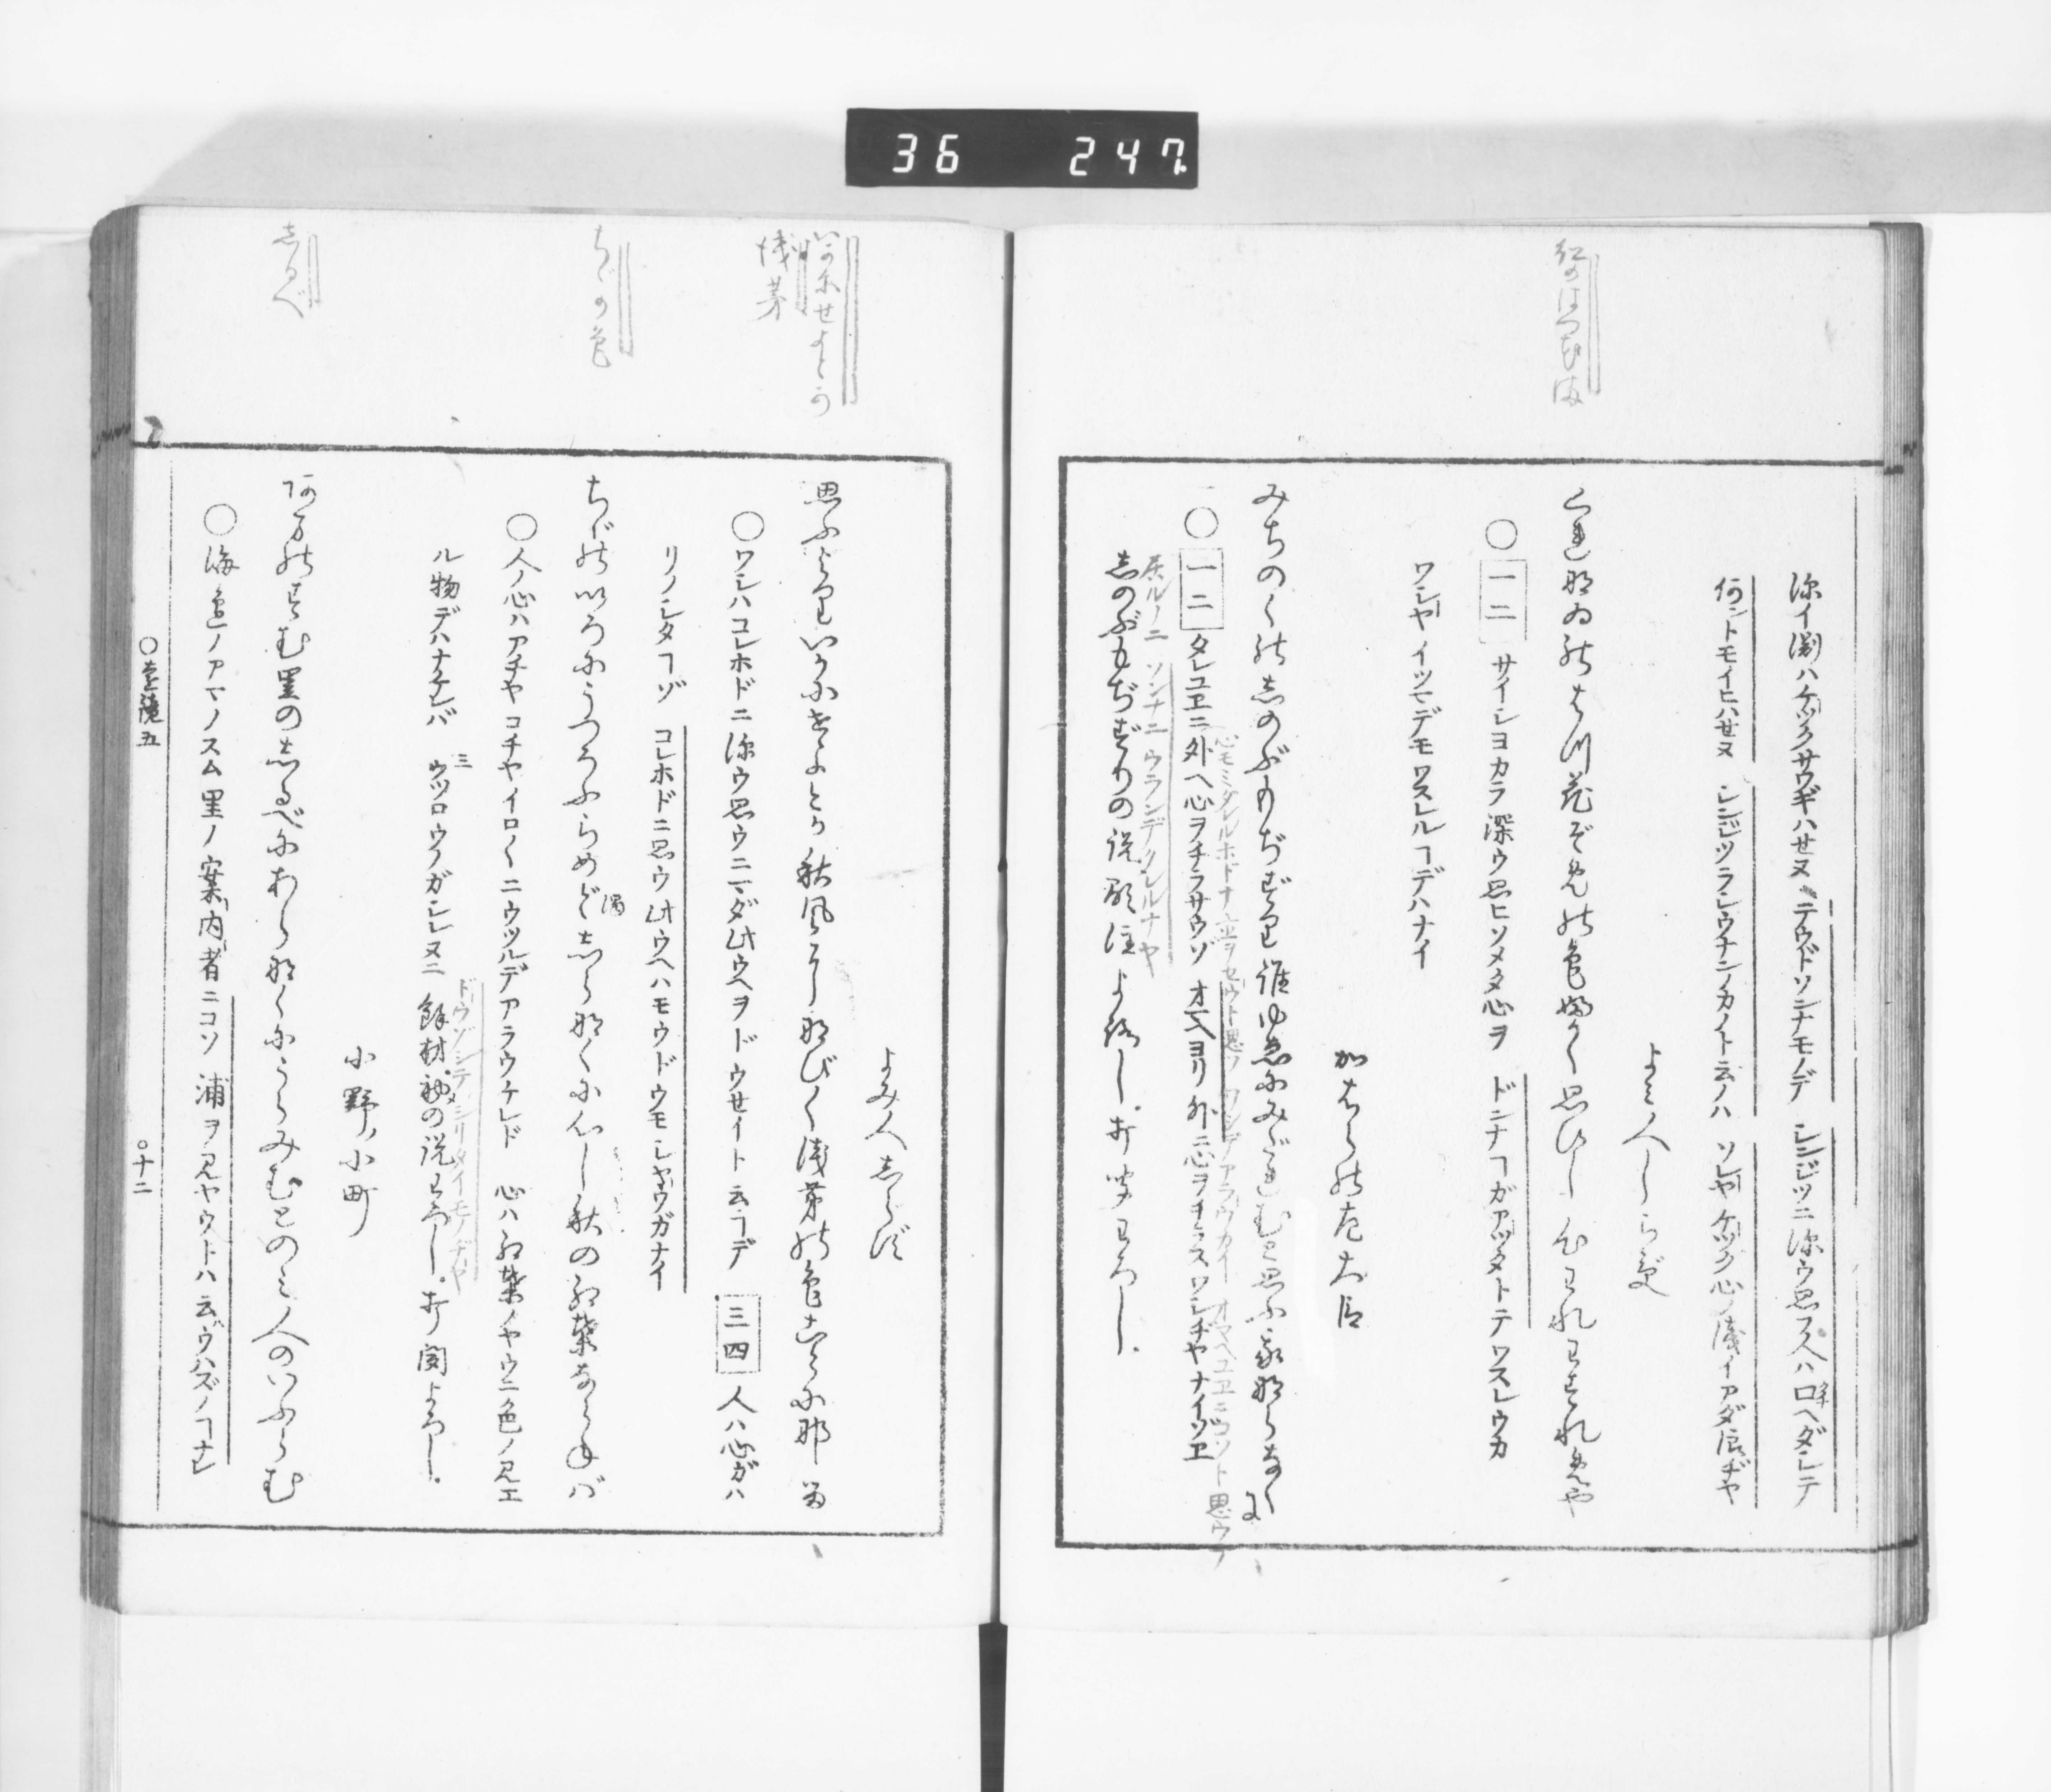 36 247
紅のはつ花ぞめ
深イ淵ハケツクサワギハセヌ テウドソンナモノデ シンジツニ深ウ思フ人ハ口ヘダシテ
何ントモイヒハセヌ シンジツランウナンノカノト云ノハ ソレヤケツク心ノ浅イアダ浪ヂヤ
よみ人しらず
くれなゐのはつ花ぞめの色ふかく思ひし心われわすれめや
○一二 サイシヨカラ深ウ思ヒソメタ心ヲ ドンナヿガアツタトテワスレウカ
ワシヤイツマデモワスレルヿデハナイ
かはらの左大臣
みちのくのしのぶもぢずり誰ゆゑにみだれむと思ふ我ならなくに
心モミダレルホドナ
ワシデアラウカイ オマヘユヱニコソト思ウ
○一二 タレユヱニ外ヘ心ヲチラサウゾ オマヘヨリ外ニ心ヲチラスワシヂヤナイゾヱ
ソンナニウランデクレルナヤ
しのぶもぢずりの説顕注よろし。打聞わろし。
いかにせよとか
浅茅
ちゞの色
しるべ
よみ人しらず
思ふよりいかにせよとか秋風になびく浅茅の色ことになる
○ワシハコレホドニ深ウ思ウニマダ此ウヘヲドウセイト云ヿデ 三四 人ハ心ガハ
リノシタヿゾ コレホドニ思ウ此ウヘハモウドウモシヤウガナイ
ちゞのいろにうつろふらめどしらなくに心し秋の紅葉ならねば
濁
○人ノ心ハアチヤコチヤイロ〳〵ニウツルデアラウケレド 心ハ紅葉ノヤウニ色ノ見エ
ル物デハナケレバ 三 ウツロウノガシレヌニ 餘材初の説わろし。打聞よろし。
ドウゾシテシリタイモノヂヤ
小野ノ小町
あまのすむ里のしるべにあらなくにうらみむとのみ人のいふらむ
○海邊ノアマノスム里ノ案内者ニコソ 浦ヲ見ヤウトハ云ヴハズノヿナレ
○遠鏡五 ○十二